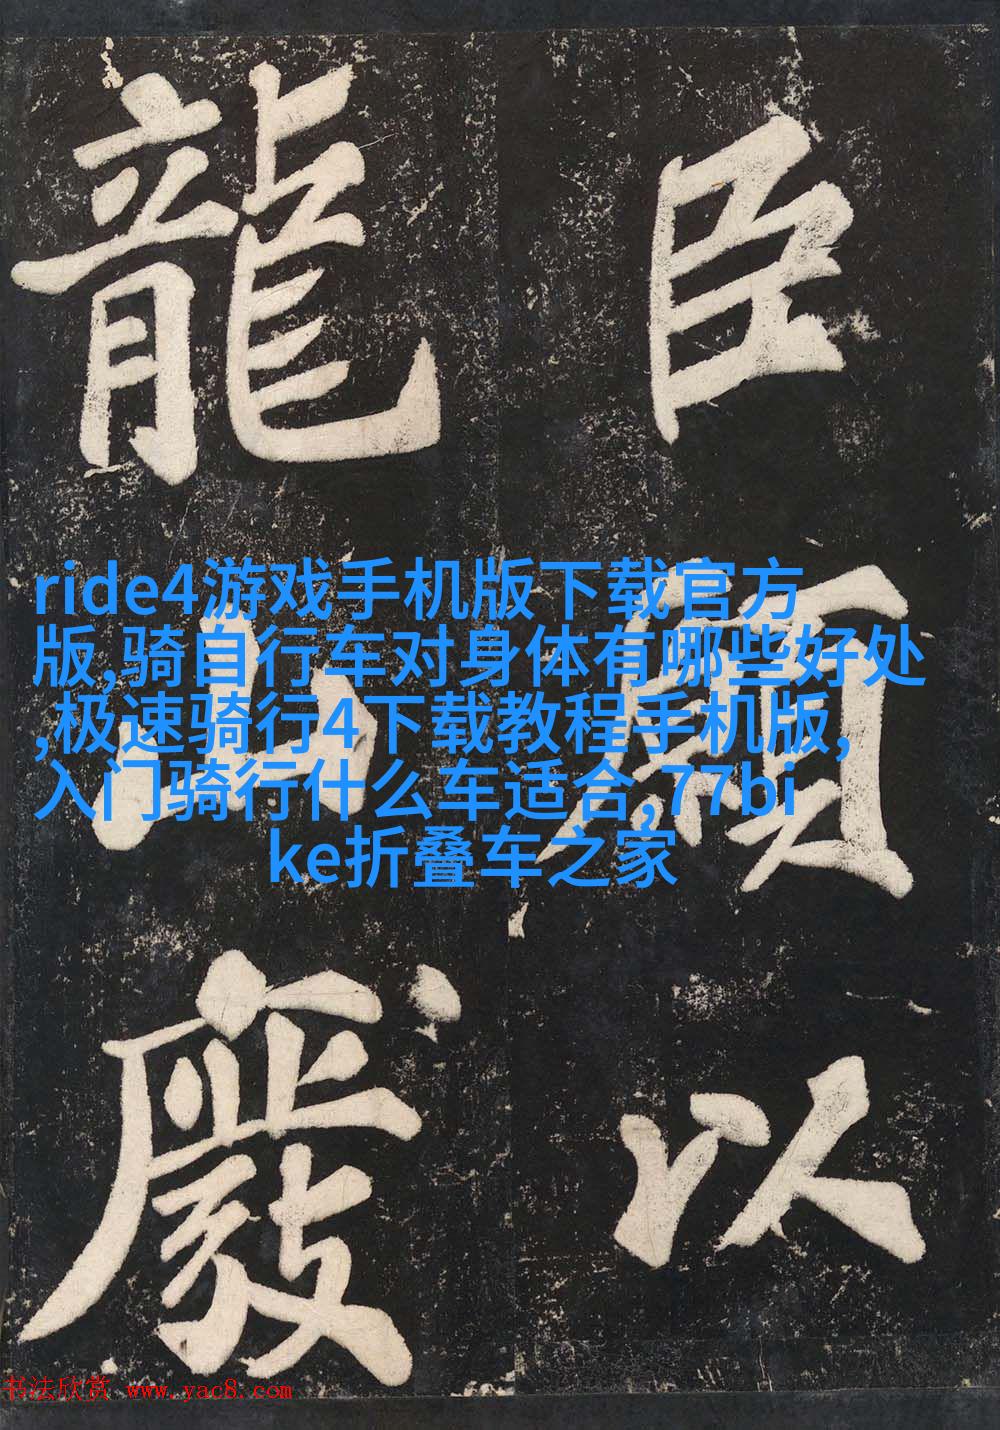 臣願以
龍山廢
ride4游戏手机版下载官方
版,骑自行车对身体有哪些好处
,极速骑行4下载教程手机版,
入门骑行什么车适合,77bi
ke折叠车之家
书法欣赏 www.yac8.com